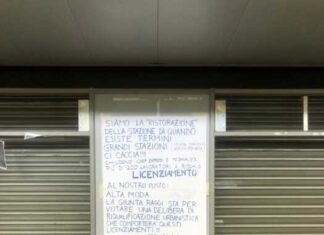 SIAMO LA "RISTORAZIONE"
DELLA STAZIONE DA QUANDO
ESISTE TERMINI
GRANDI STAZIONI
CI CACCIA!!!
CHIUDONO CHEF EXPRESS E
PIÙ DI 200 LAVORATORI A RISCHIO
LICENZIAMENTO
AL NOSTRO POSTO:
ALTA MODA
LA GIUNTA RAGGI STA PER
VOTARE UNA DELIBERA DI
RIQUALIFICAZIONE URBANISTICA
CHE COMPORTERÀ QUESTI
LICENZIAMENTI!!